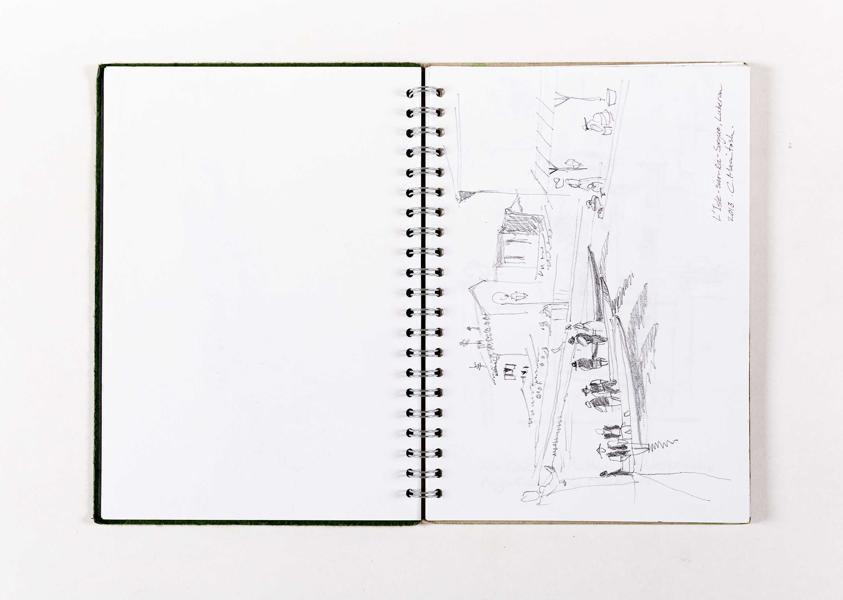 L'Isle-sur-la-Sorgue, Luberon
2013 C Macintosh.